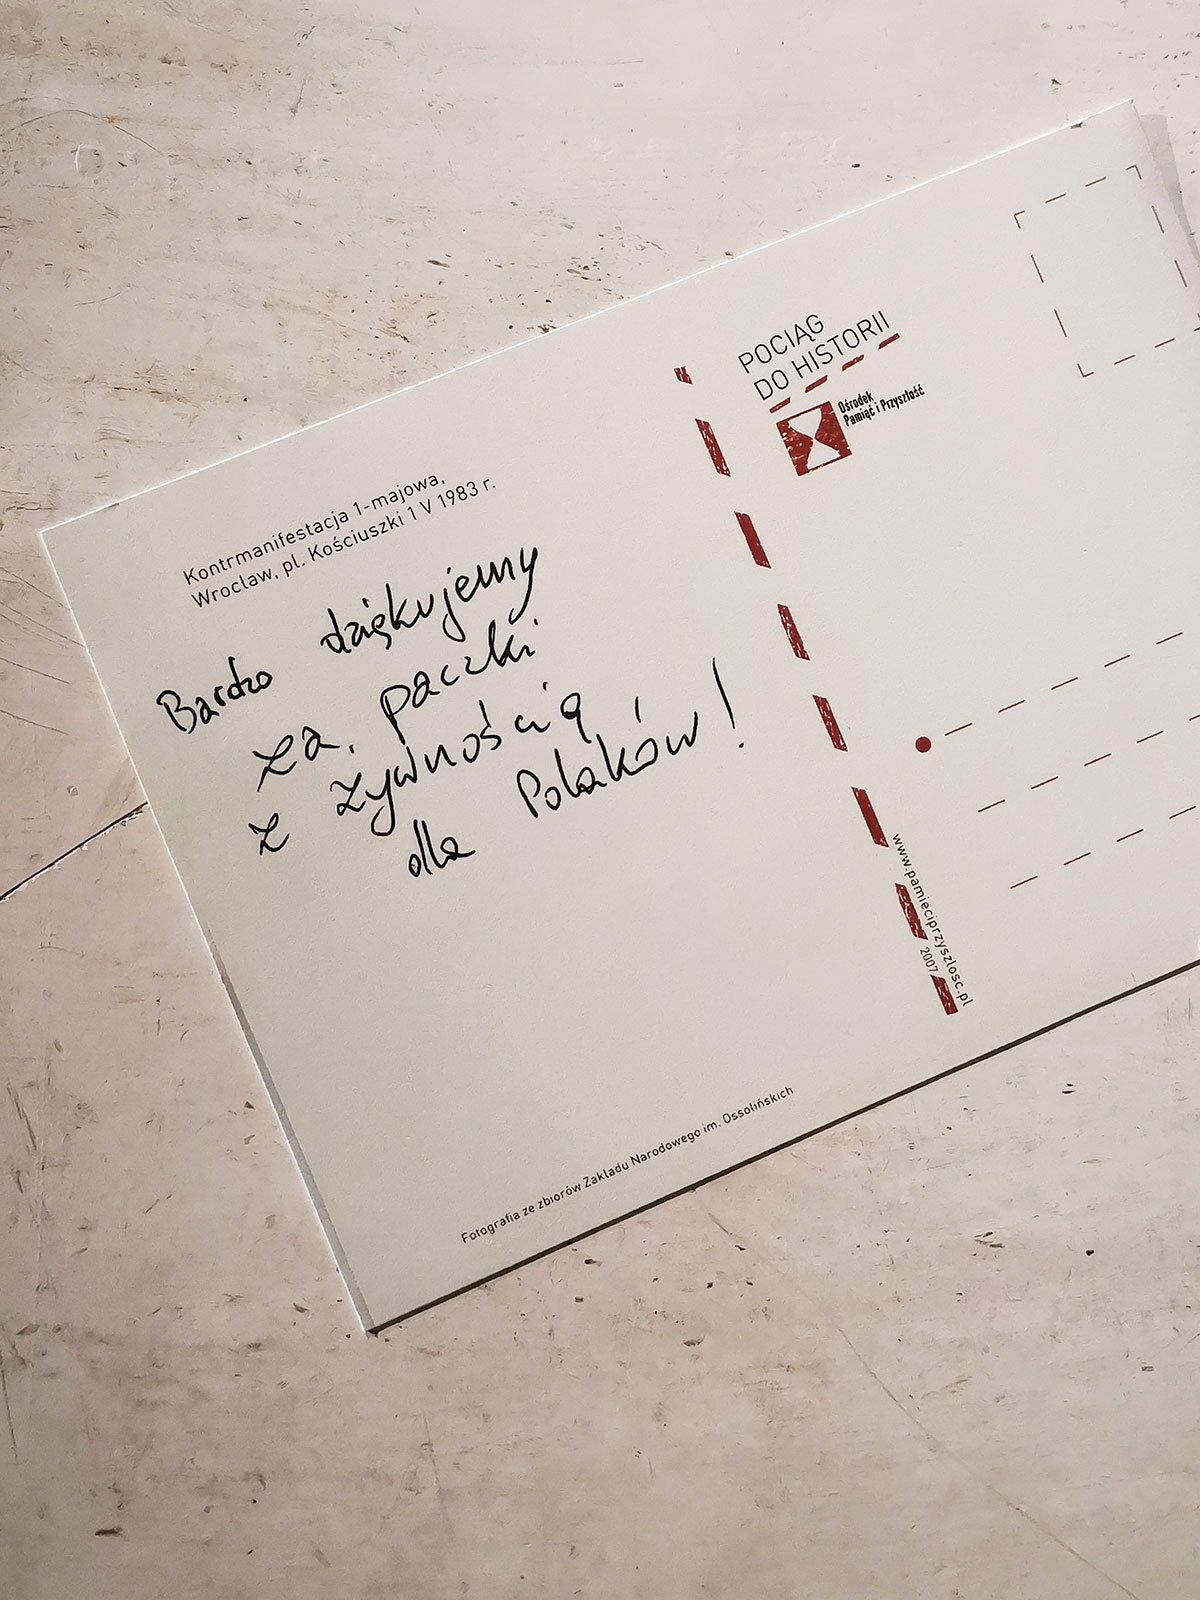 Kontrmanifestacja 1-majowa,
Wrocław, pl. Kościuszki 1 V 1983 r.
Bardzo dziękujemy
za paczki
z żywnością
dla Polaków!
POCIĄG
DO HISTORII
Ośrodek
Pamięć i Przyszłość
www.pamieciprzyszlosc.pl
2007
Fotografia ze zbiorów Zakładu Narodowego im. Ossolińskich